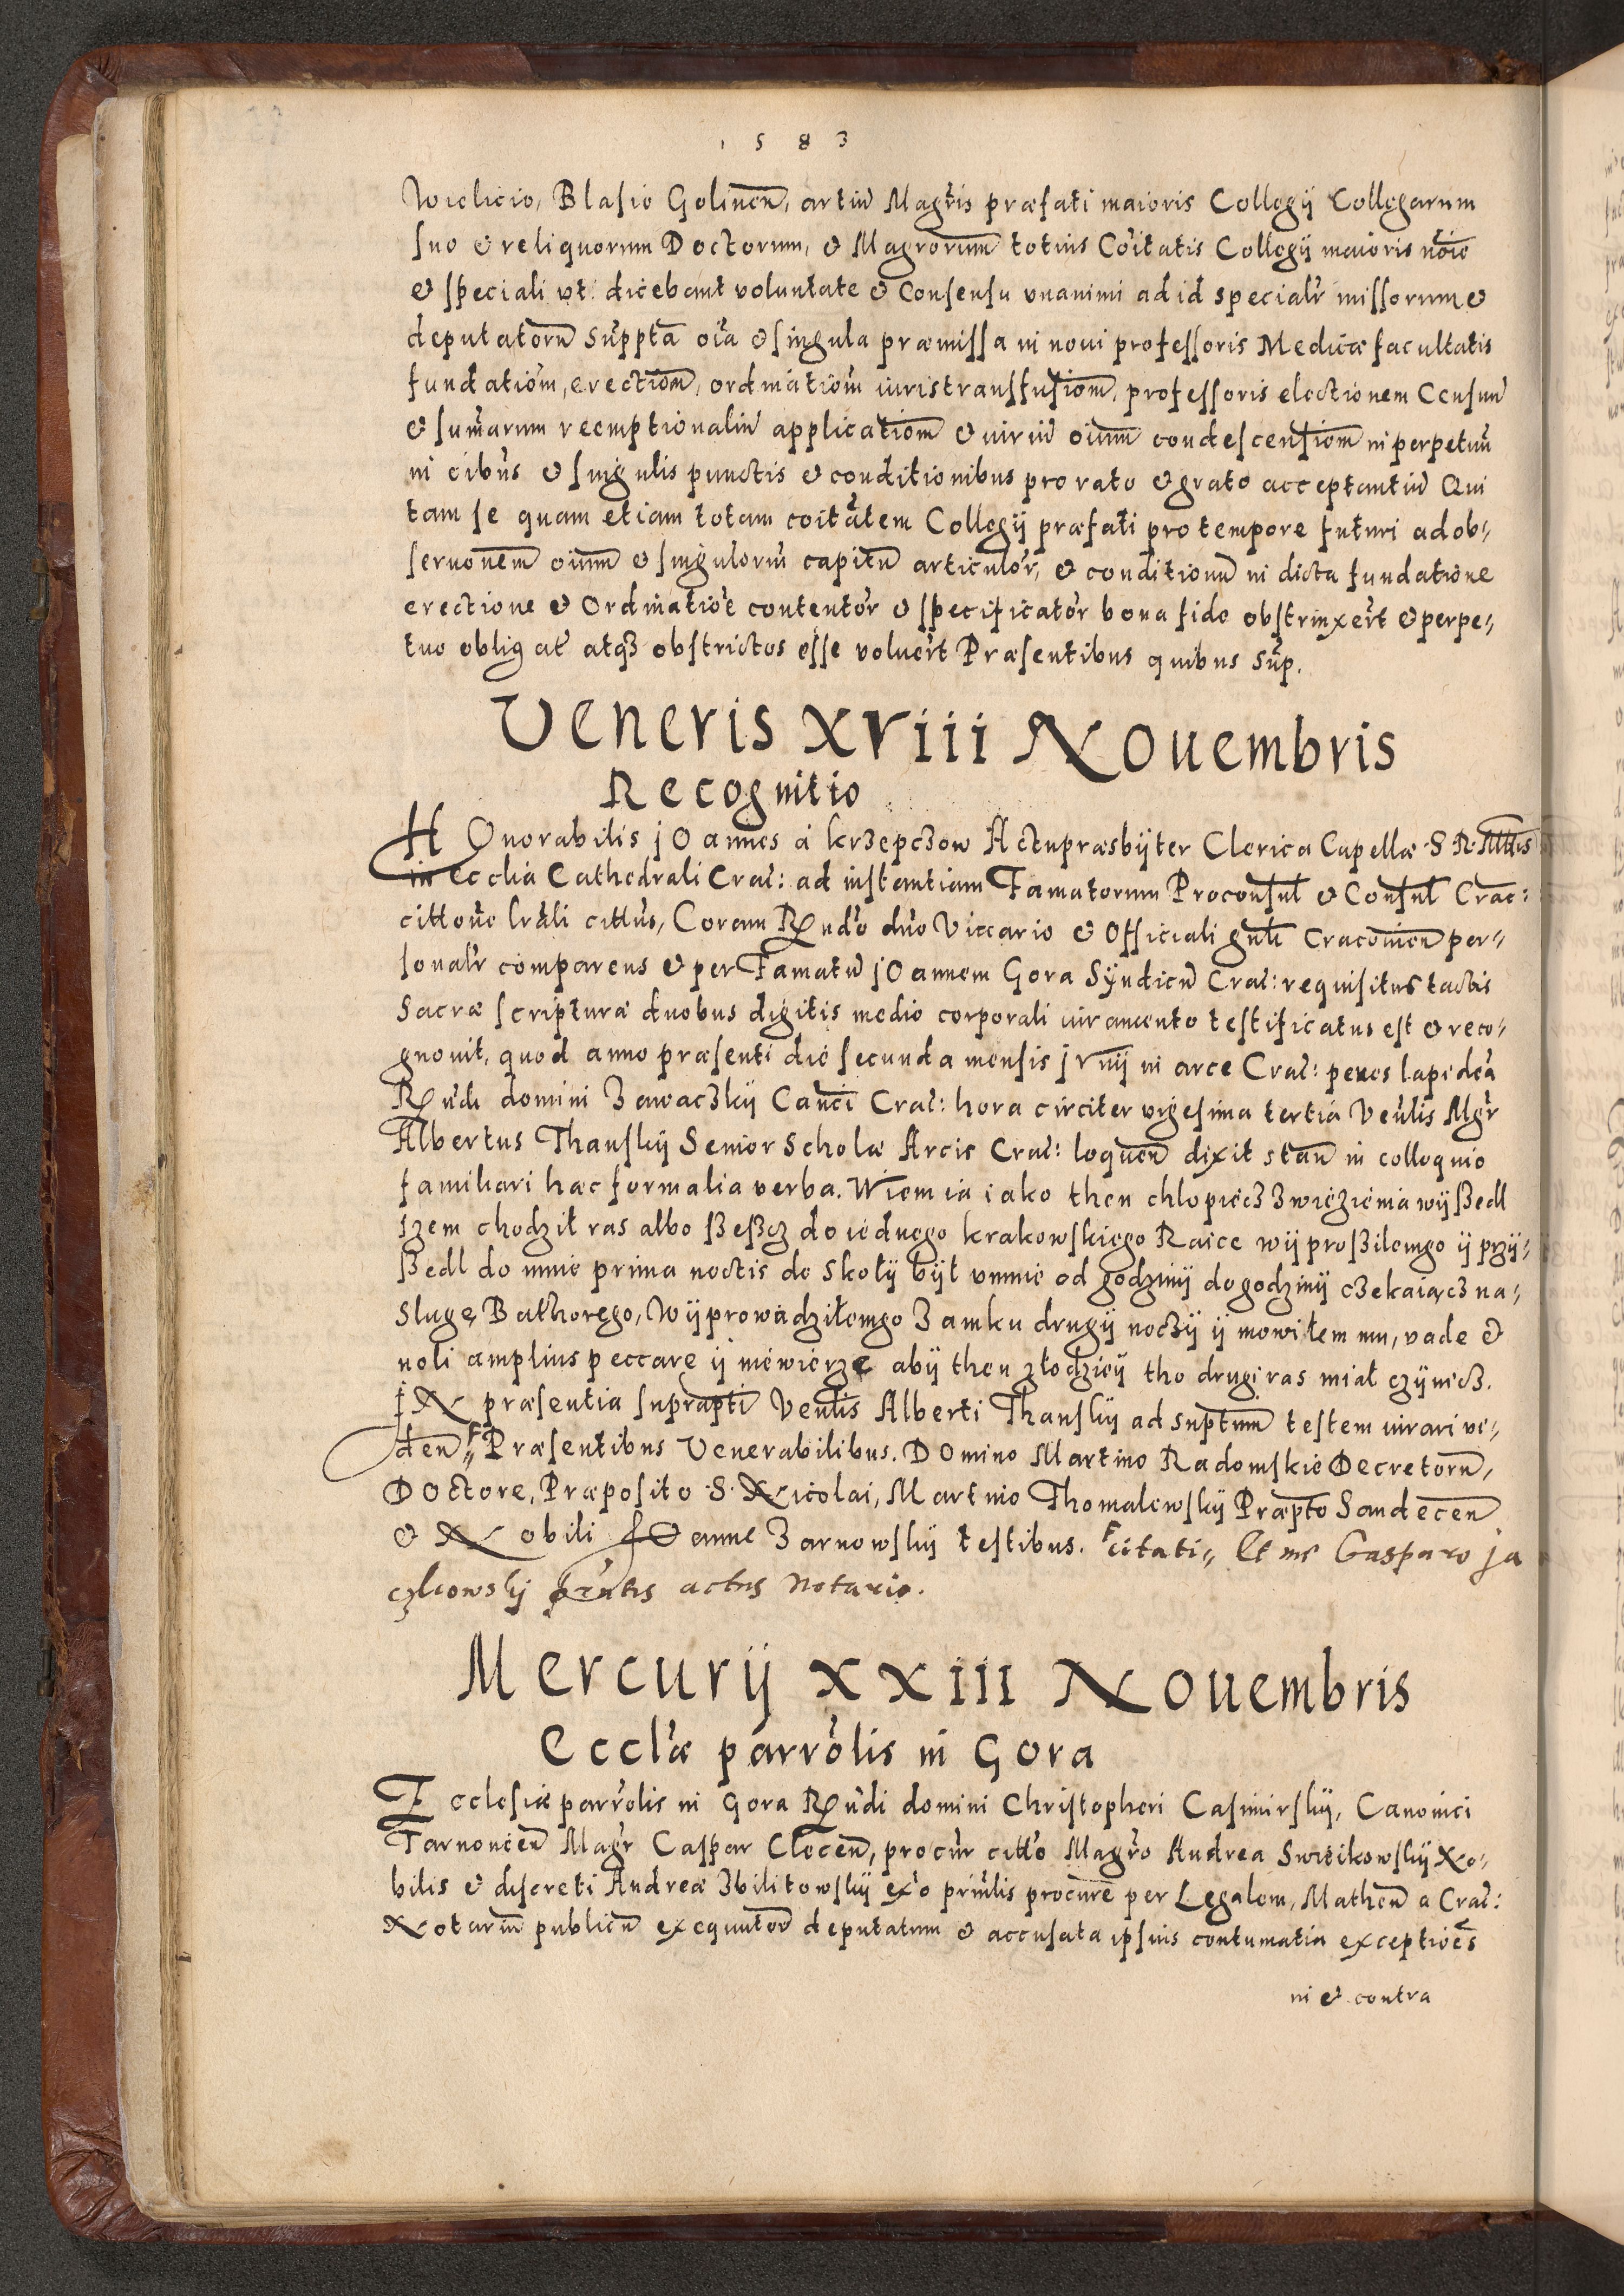 1583
Wielicio, Blasio Golinen̄, artiū Magr̄is præfati maioris Collegij Collegarum
suo et reliquorum Doctorum, et Magrorum totius Coītatis Collegij maioris nōie
et speciali ut dicebant voluntate et Consensu unanimi ad id specialr̄ missorum et
deputatorū sup̄pta oīa et singula præmissa in noui professoris Medicæ facultatis
fundatiom̄, erectiom̄, ordinatiom̄ iuris transfusiom̄, professoris electionem Censuū
et sum̄arum reemptionaliū applicatiom̄ et iuriū oīum condescensiom̄ in perpetuū
in oībus et singulis punctis et conditionibus pro rato et grato acceptantiū Qui
tam se quam etiam totam coītātem Collegij præfati pro tempore futuri ad ob„
seruonēm oīum et singulorū capitū articulor̄, et conditionū in dicta fundatione
erectione et Ordinatiōe contentor̄ et specificator̄ bona fide obstrinxer̄t et perpe„
tuo obligat̄ atqȝ obstrictos esse voluer̄t Præsentibus quibus sup̄.
Veneris XVIII Nouembris
Recognitio
HOnorabilis jOannes à krzepczow Actu præsbyter Clerica Capellæ S R Mttis
in Ecclīa Cathedrali Crac̄: ad instantiam Famatorum Proconsul̄ et Consul̄ Crac:
cittōne lr̄āli cittūs, Coram Rn̄do dn̄o Viccario et Officiali gn̄li Cracouien̄ per„
sonalr̄ comparens et per Famatū jOannem Gora Syndicū Crac̄: requisitus tactis
Sacræ scripturæ duobus digitis medio corporali iuramento testificatus est et reco„
gnouit, quod anno præsenti die secunda mensis jVnij in arce Crac̄: penes lapideā
Rn̄di domini Zawaczkij Can̄ci Crac̄: hora circiter vigesima tertia Ven̄lis Mgr̄
Albertus Thanskij Senior Scholæ Arcis Crac̄: loquen̄ dixit stan̄ in colloquio
familiari hæc formalia verba. Wiem ia iako then chlopiecz z więzienia wyßedl
szem chodził ras albo ßeßcz do iednego krakowskiego Raice wyproßilemgo y przy„
ßedl do mnie prima noctis do Skoły był v mnie od godziny do godziny czekaiącz na„
Sługę Bathorego, Wyprowadziłemgo Zamku drugij noczy y mowiłem mu, vade et
noli amplius peccare y niewierzę aby then złodziey tho drugi ras miał czynicz.
IN præsentia suprapti Ven̄lis Alberti Thanskij ad suptum testem iurari vi„
den̄„ Præsentibus Venerabilibus. DOmino Martino Radomskie Decretorū,
DOctore, Præposito S. Nicolai, Martino Thomalewskij Præpto Sandecen̄
et Nobili jOanne Zarnowskij testibus. citati„ Et me Gasparo ja
czkowskij pr̄ntis actus Notario.
Mercurij XXIII Nouembris
Eccl̄æ parrōlis in Gora
Ecclesiæ parrōlis in Gora Rn̄di domini Christopheri Casimirskij, Canonici
Tarnouien̄ Magr̄ Caspar Clocen̄, procūr cittō Magr̄o Andrea Swiēikowskij No„
bilis et discreti Andreæ Zbilitowskij ex̄o prin̄lis procurē per Legalem, Matheū a Crac̄:
Notariū publicū exequutor̄ deputatum et accusata ipsius contumatia exceptiōes
in et contra